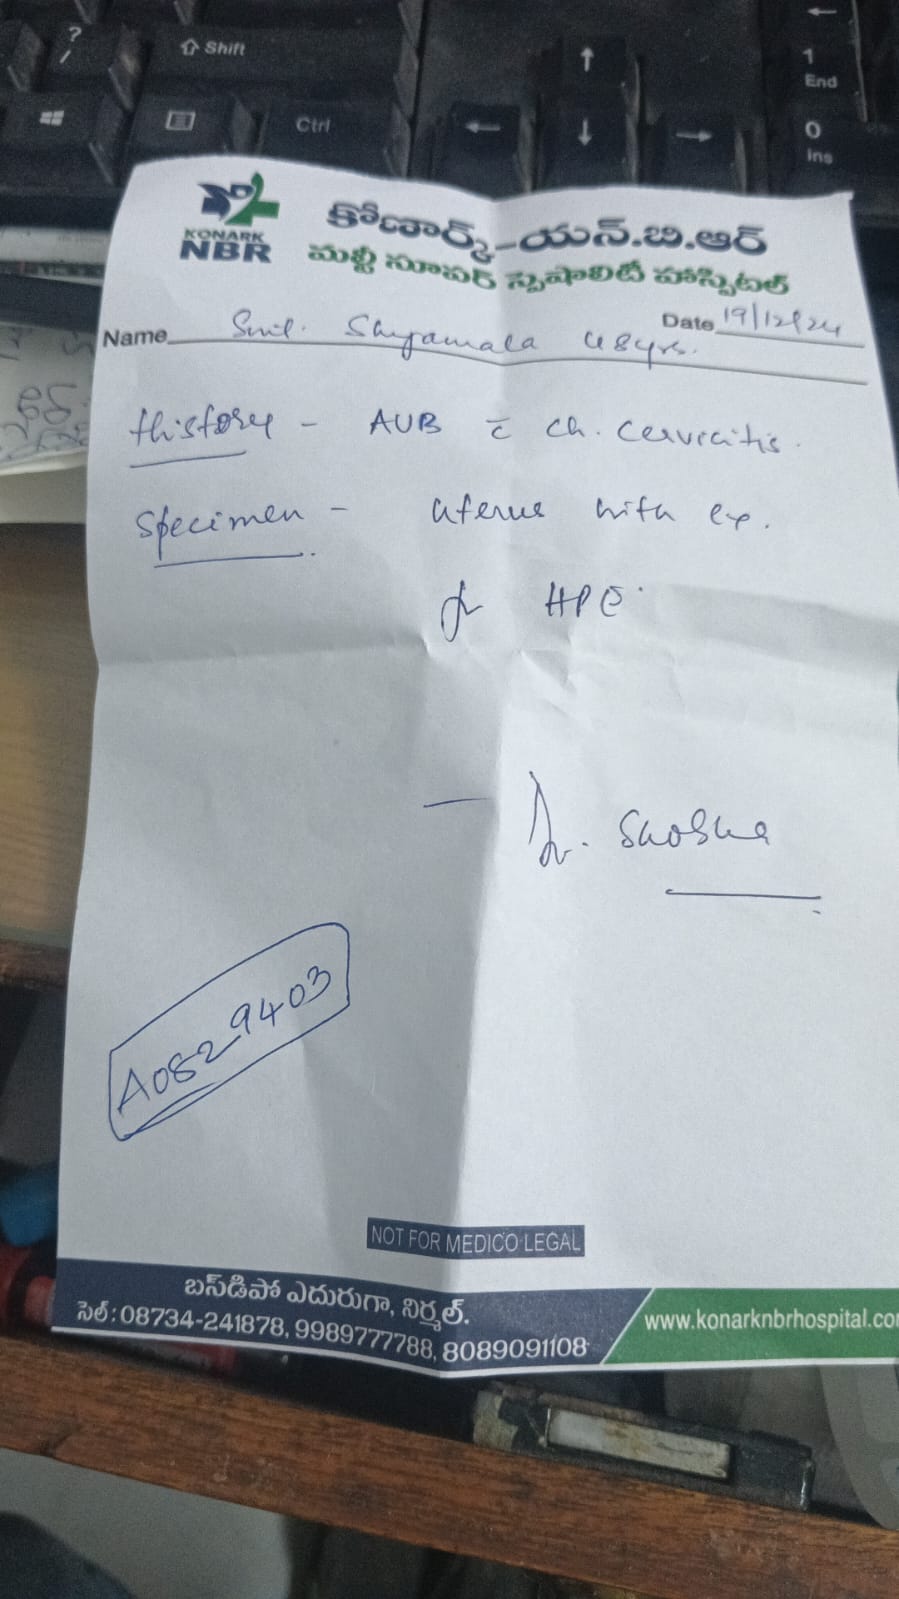 ?
/
⇧ Shift
↑
←
1
End
Ctrl
←
↓
→
0
Ins
KONARK
NBR
కోణార్క్-యన్.బి.ఆర్
మల్టీ సూపర్ స్పెషాలిటీ హాస్పిటల్
Date 19/12/24
Name Smt. Shyamala 48yrs.
History - AUB c̄ ch. cervicitis.
Specimen - uterus with cx.
for HPE.
— Dr.
A0829403
NOT FOR MEDICO LEGAL
బస్‌డిపో ఎదురుగా, నిర్మల్.
సెల్: 08734-241878, 9989777788, 8089091108
www.konarknbrhospital.co